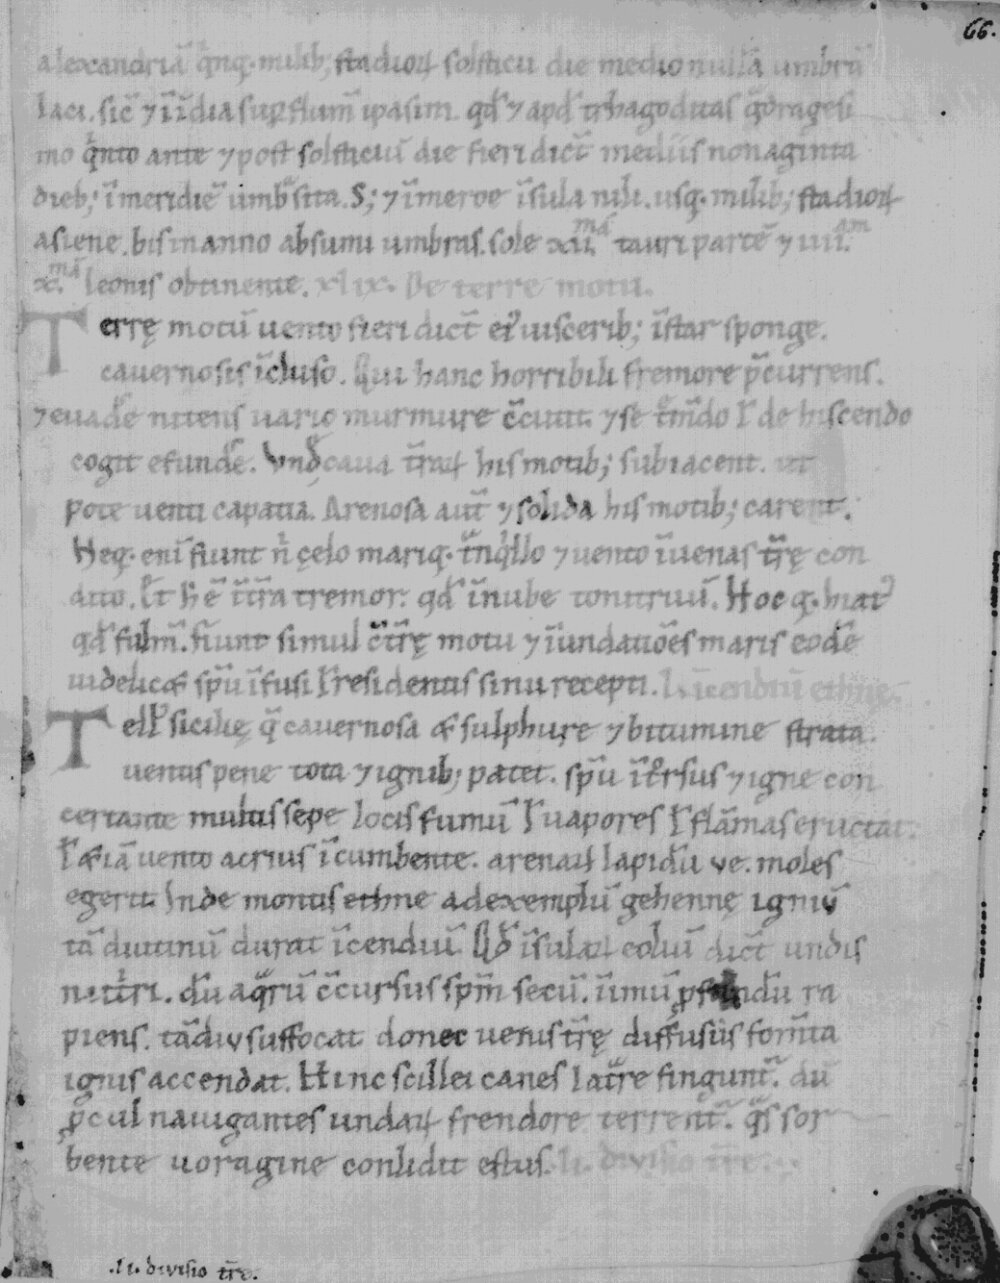 66.
alexandriā qͥnq· milib; stadioꝝ solsticii die medio nullā umbrā
iaci. sic̄ ⁊ īīdia suꝑ flum̄ ipasim. qđ ⁊ apđ trhagoditas q̄dragesi
mo qͥnto ante ⁊ post solsticiū die fieri dict̄ mediis nonaginta
dieb; īmeridie umbͣ sita. S; ⁊ īmeroe īsula nili. usq· milib; stadioꝝ
asiene. bis in anno absumi umbras. sole xii.ᵐᵃ̄ tauri partē ⁊ iiii.ᵃᵐ
x.ᵐᵃ̄ leonis obtinente. xlix. De terre motu.
Terrę motū uento fieri dict̄ eiꝰ uiscerib; īstar sponge.
cavernosis īcluso. Qui hanc horribili fremore p̄currens.
⁊ euadͤe nitens uario murmure c̄cutit. ⁊ se tͬm̄do ƚ dehiscendo
cogit efundͤe. Vnđ caua tr̄aꝝ his motib; subiacent. ut
pote uenti capatia. Arenosa aut̄ ⁊ solida his motib; carent.
Neq· eni fiunt n̄ cęlo mariq· tͣnqͥllo ⁊ uento īuenas tr̄ę con
dito. Et h̄ ē ī tr̄ra tremor. qđ īnube tonitruū. Hoc q· hiatꝰ
qđ fulm̄. fiunt simul c̄ tr̄ę motu ⁊ īundatiōes maris eodē
uidelicet sp̄u īfusi ƚ residentis sinu recepti. L. īcendiū ethnę.
Tellꝰ sicilię q̄ cavernosa & sulphure ⁊ bitumine strata.
uentis pene tota ⁊ ignib; patet. sp̄u ītrͦrsus ⁊ igne con
certante multis sepe locis fumū ƚ uapores ƚ flāmas eructat.
ƚ &iā uento acrius īcumbente. arenaꝝ lapidū ve. moles
egerit. Inde montis ethne ad exemplū gehennę igniū
tā diutinū durat īcendiū. Qđ īsulaꝝ eoliū dict̄ undis
nutͥri. dū aqͣrū c̄cursus spm̄ secū. īimū ꝓfundū ra
piens. tādiv suffocat donec uenis tr̄ę diffusus fom̄ta
ignis accendat. Hinc scillei canes latͣre fingunt̄. dū
ꝓcul nauigantes undaꝝ frendore terrent̄. qͣs sor
bente uoragine conlidit estus. li. divisio tr̄e.
.li. divisio tr̄e.